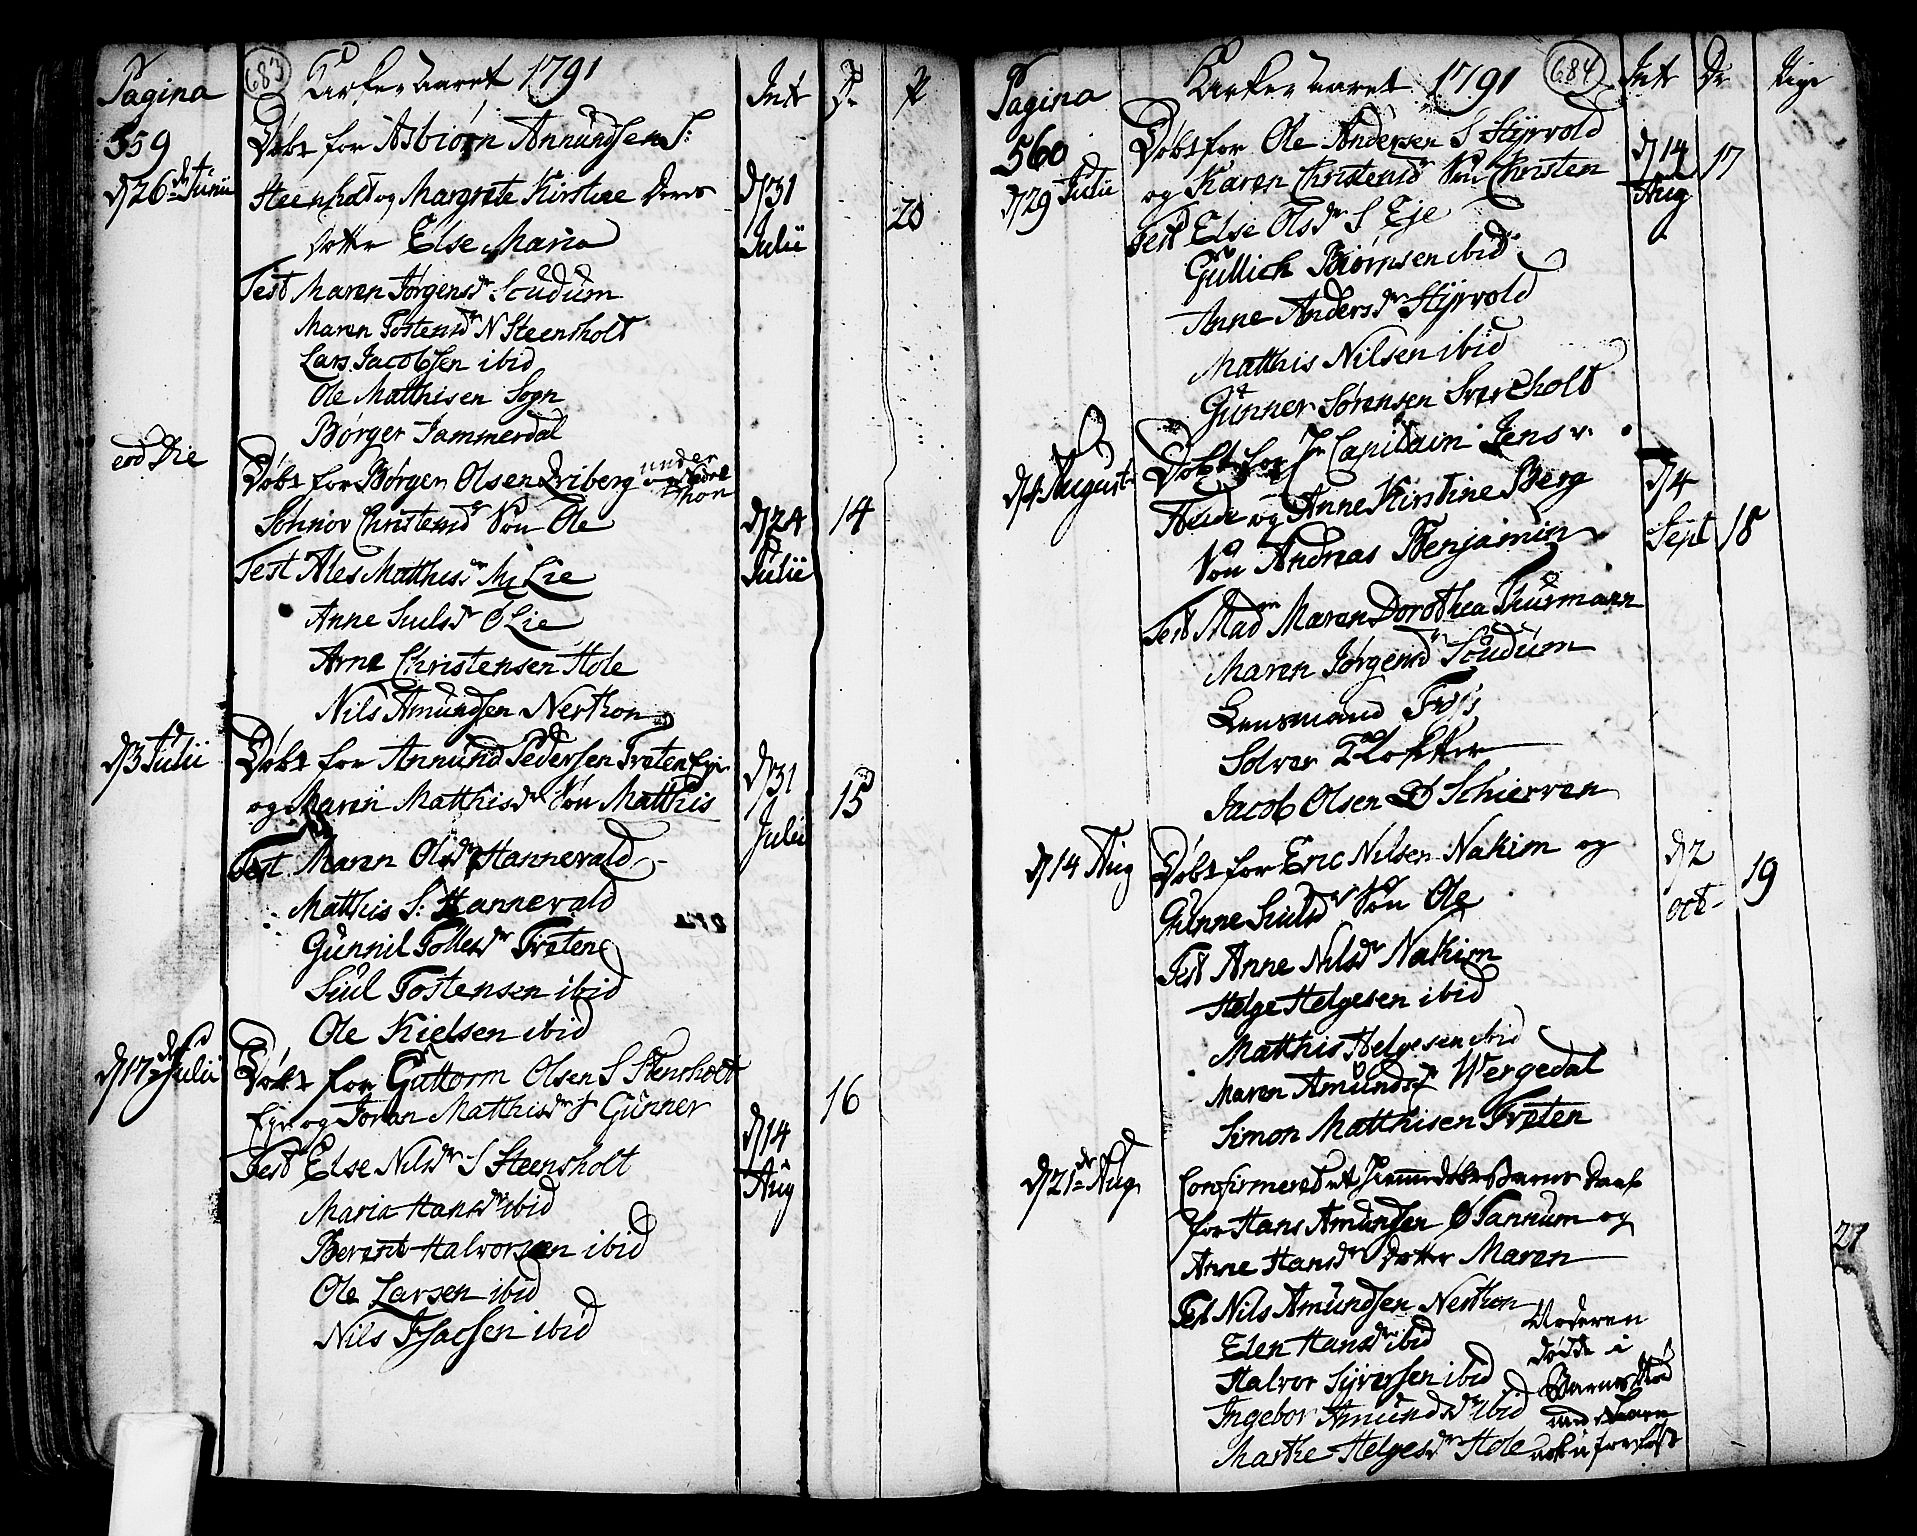 Pagina
559
683
Kirke Aaret 1791
Int
Dr
P
d 26de Junii
Døbt for Asbiørn Annundsen S:
Steenholt og Margrete Kirstine Deres
dotter Else Maria
d 31
Julii
20
Test Maren Jørgensdr Soudum
Maren Tostensdr N Steensholt
Lars Jacobsen ibid
Ole Matthisen Sogn
Børger Jammerdal
eod Die
Døbt for Børgen Olsen under
Sohnov Christensdr Søn Ole
d 24
Julii
14
Test Ales Matthisdr M Lie
Anne Siulsdr Ø Lie
Arne Christensen Hole
Nils Amundsen Nerthon
d 3 Julii
Døbt for Annund Pedersen Traten Eje
og Maren Matthisdr Søn Matthis
d 31
Julii
15
Test Maren Olsdr Hannevald
Matthis S: Hannevald
Gunnil Tollesdr Traten
Siul Tostensen ibid
Ole Kielsen ibid
d 17de Julii
Døbt for Guttorm Olsen S Stensholt
Eje og Joran Matthisdr S Gunner
d 14
Aug
16
Test Else Nilsdr S Steensholt
Maria Hansdr ibid
Berent Halvorsen ibid
Ole Larsen ibid
Nils Isacsen ibid
Pagina
560
Kirke Aaret 1791
684
Int
Dr
Pige
d 29 Julii
Døbt for Ole Andersen S Styrvold
og Karen Christensdr Søn Christen
d 14
Aug
17
Test Else Olsdr S Eje
Gullich Biørnsen ibid
Anne Andersdr Styrvold
Matthis Nilsen ibid
Gunner Sørensen
d 4 August
Døbt for Hr Capitain Jens v.
og Anne Kirstine Berg
Søn Andreas Benjamin
d 4
Sept
18
Test Mad Maren Dorothea Thurmann
Maren Jørgensdr Soudum
Lensmand
Solver Klokker
Jacob Olsen Ø Schierven
d 14 Aug
Døbt for Eric Nilsen Nakim og
Gunne Siulsdr Søn Ole
d 2
oct
19
Test Anne Nilsdr Nakim
Helge Helgesen ibid
Matthis Helgesen ibid
Maren Amundsdr Wergedal
Simon Matthisen Traten
d 21de Aug
Confirmered et Hiemmedøbt Barns Daab
for Hans Amundsen Ø Tannum og
Anne Hansdr Dotter Maren
21
Test Nils Amundsen Nerthon
Elen Hansdr ibid
Halvor Syversen ibid
Ingebor Amundsdr ibid
Marthe Helgesdr Hole
Moderen
døde i
Barnsnød